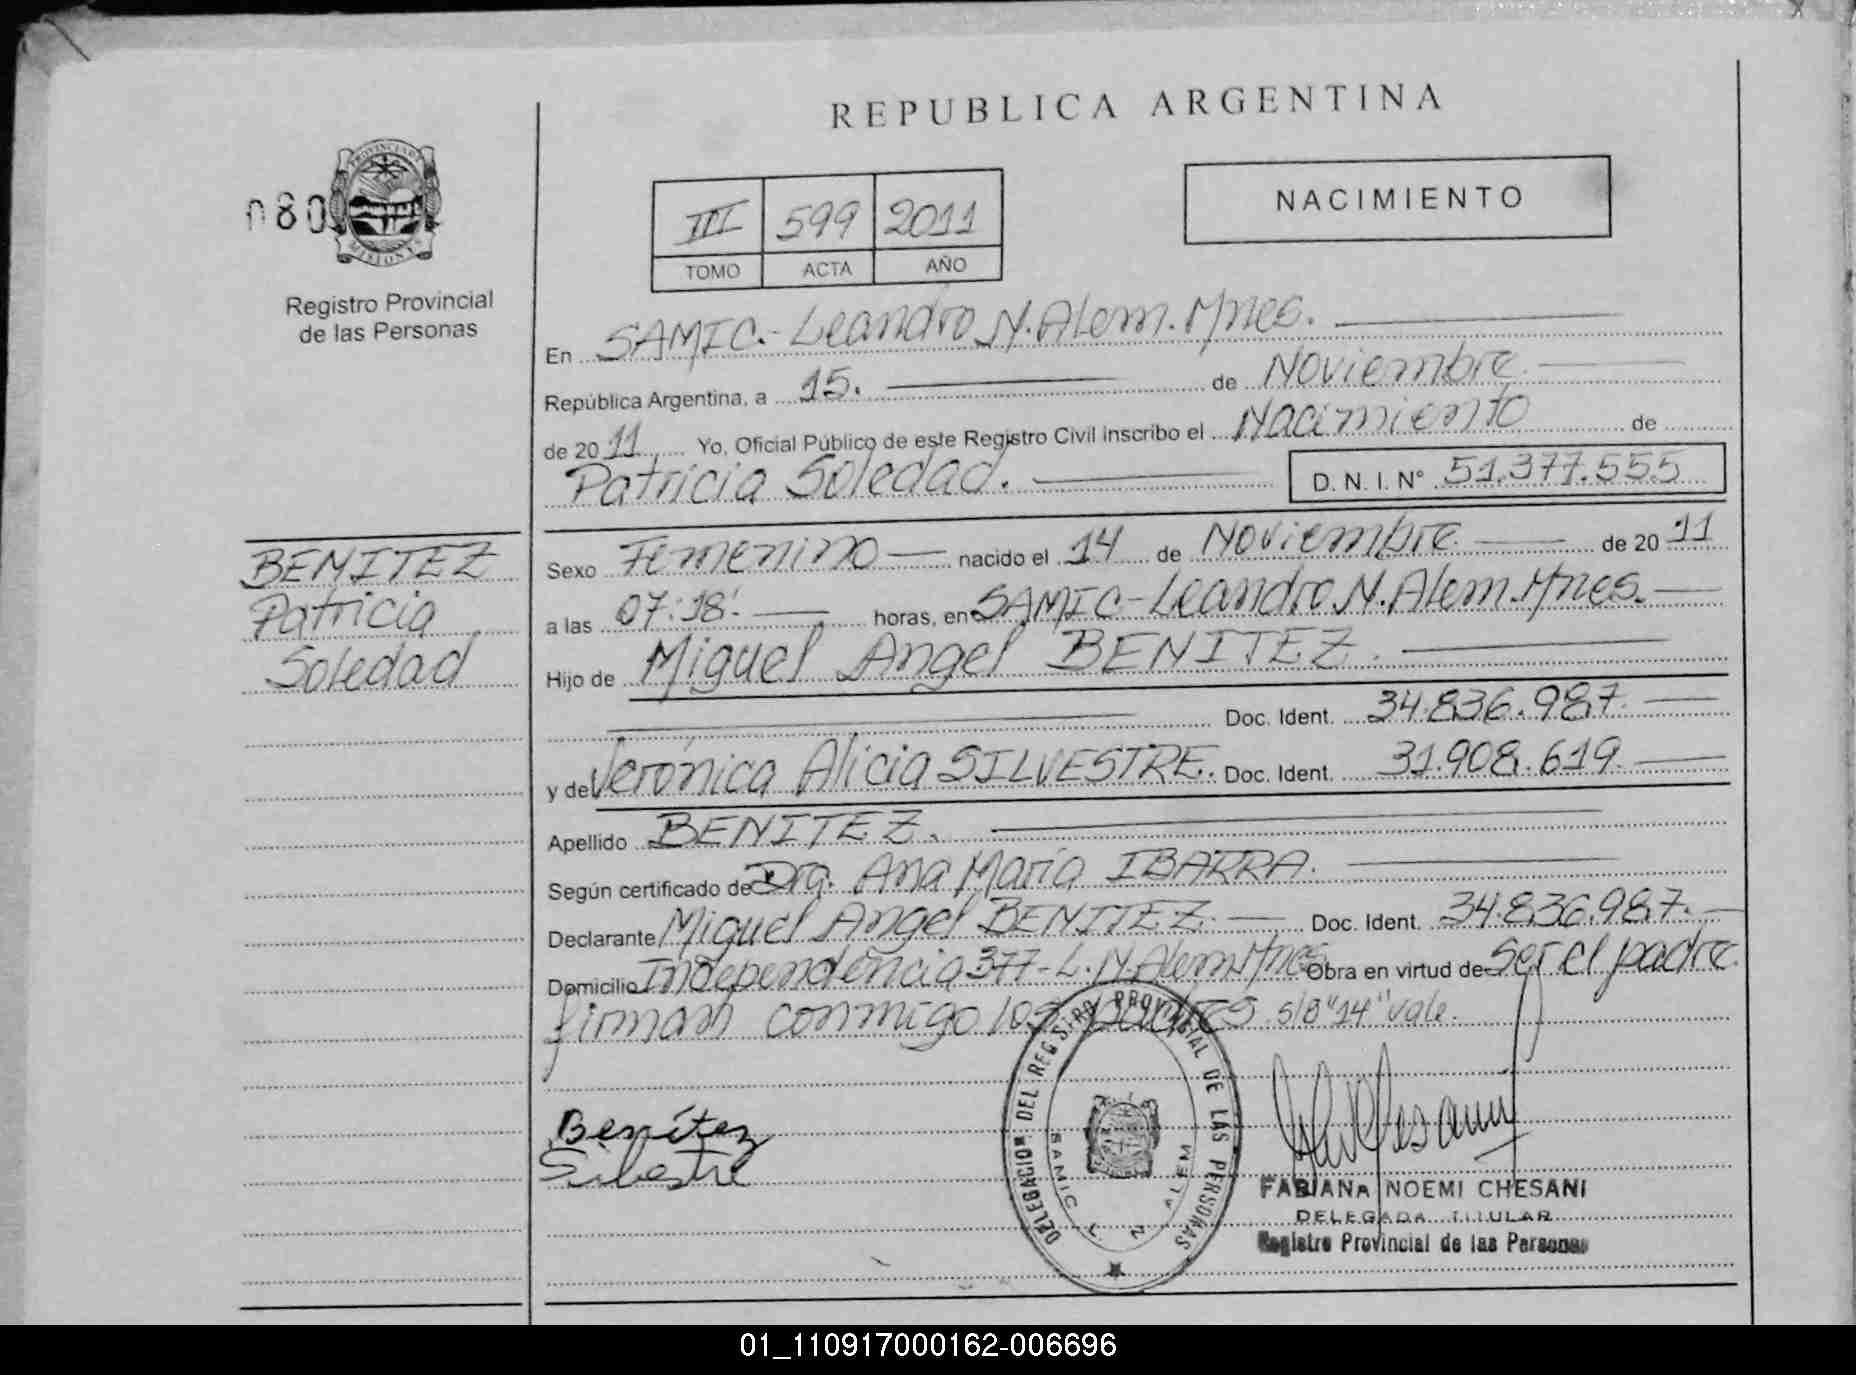 REPUBLICA ARGENTINA
080
PROVINCIA DE
MISIONES
Registro Provincial
de las Personas
III 599 2011
TOMO ACTA AÑO
NACIMIENTO
En SAMIC.- Leandro N. Alem. Mnes.
República Argentina, a 15. de Noviembre
de 2011 Yo, Oficial Público de este Registro Civil inscribo el Nacimiento de
Patricia Soledad. D. N. I. N° 51.377.555
BENITEZ
Patricia
Soledad
Sexo Femenino nacido el 14 de Noviembre de 2011
a las 07:18'. horas, en SAMIC-Leandro N. Alem. Mnes.
Hijo de Miguel Angel BENITEZ.
Doc. Ident. 34.836.987.
y de Verónica Alicia SILVESTRE. Doc. Ident. 31.908.619.
Apellido BENITEZ.
Según certificado de Dra. Ana María IBARRA.
Declarante Miguel Angel BENITEZ. Doc. Ident. 34.836.987.
Domicilio Independencia 377-L.N.Alem Mnes Obra en virtud de ser el padre.
firman conmigo los padres s/b "14" vale.
Benítez
Silbestre
DELEGACION DEL REGISTRO PROVINCIAL DE LAS PERSONAS
SAMIC L. N. ALEM
FABIANA NOEMI CHESANI
DELEGADA TITULAR
Registro Provincial de las Personas
01_110917000162-006696